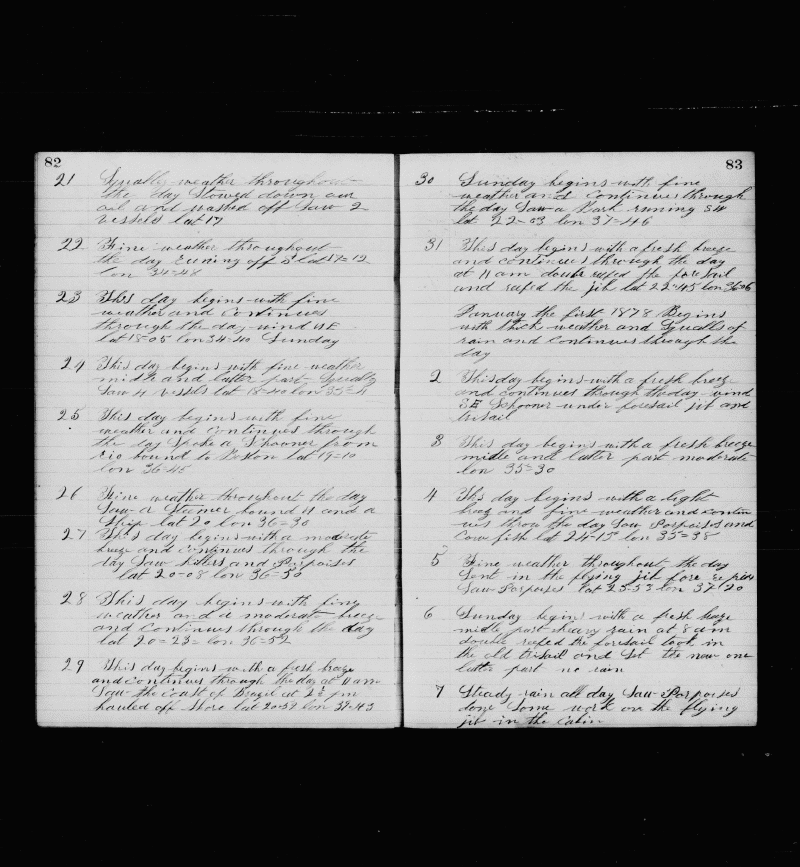 82
21 Squally weather throughout
the day Stowed down our
oil and washed off Saw 2
vessels lat 17
22 Fine weather throughout
the day runing off S lat 17=12
lon 34=48
23 This day begins with fine
weather and Continues
through the day wind NE
lat 18=05 lon 34=40 Sunday
24 This day begins with fine weather
middle and latter part Squally
Saw 4 vessels lat 18=40 lon
25 This day begins with fine
weather and continues through
the day Spoke a Schooner from
rio bound to Boston lat 19=10
lon 36=45
26 Fine weather throughout the day
Saw a Steamer bound N and a
Ship lat 20 lon 36=30
27 This day begins with a moderate
breze and continues through the
day Saw killers and Porpoises
lat 20=08 lon 36=50
28 This day begins with fine
weather and a moderate breeze
and Continues through the day
lat 20=23 lon 36=52
29 This day begins with a fresh breze
and continues through the day at 11 am
Saw the coast of Brazil at 2½ pm
hauled off Shore lat 20=59 lon 39=43
83
30 Sunday begins with fine
weather and continues through
the day Saw a Bark runing SW
lat 22=03 lon 37=46
31 This day begins with a fresh breeze
and continues through the day
at 11 am double reefed the foresail
and reefed the jib lat 22=45 lon 36=06
January the first 1878 Begins
with thick weather and Squalls of
rain and continues through the
day
2 This day begins with a fresh breeze
and continues through the day wind
SE Schooner under foresail jib and
trisail
3 This day begins with a fresh breeze
middle and latter part moderate
lon 35=30
4 This day begins with a light
breez and fine weather and contin
ues throu the day Saw Porpoises and
Cow fish lat 24=15 lon 35=38
5 Fine weather throughout the day
Sent in the flying jib fore
Saw Porpoises lat 25=53 lon 37=20
6 Sunday begins with a fresh breze
midle part heavy rain at 8 am
double reefed the foresail took in
the old trisail and Set the new one
latter part no rain
7 Steady rain all day Saw Porpoises
done Some work on the flying
jib in the cabin